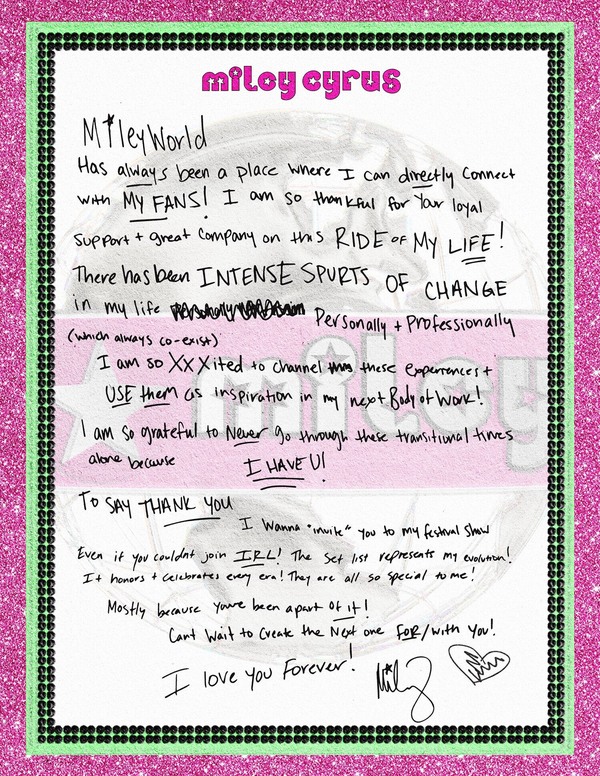 miley cyrus
MileyWorld
Has always been a place where I can directly connect
with MY FANS! I am so thankful for your loyal
support + great company on this RIDE of MY LIFE!
There has been INTENSE SPURTS OF CHANGE
in my life Personally + Professionally
(which always co-exist)
I am so XXXited to channel these experiences +
USE them as inspiration in my next Body of Work!
I am so grateful to Never go through these transitional times
alone because I HAVE U!
To SAY THANK YOU
I Wanna "invite" you to my festival show
Even if you couldnt join IRL! The Set list represents my evolution!
It honors + celebrates every era! They are all so special to me!
Mostly because youve been apart of it!
Cant Wait to Create the Next one FOR/with You!
I love you Forever! Miley
miley